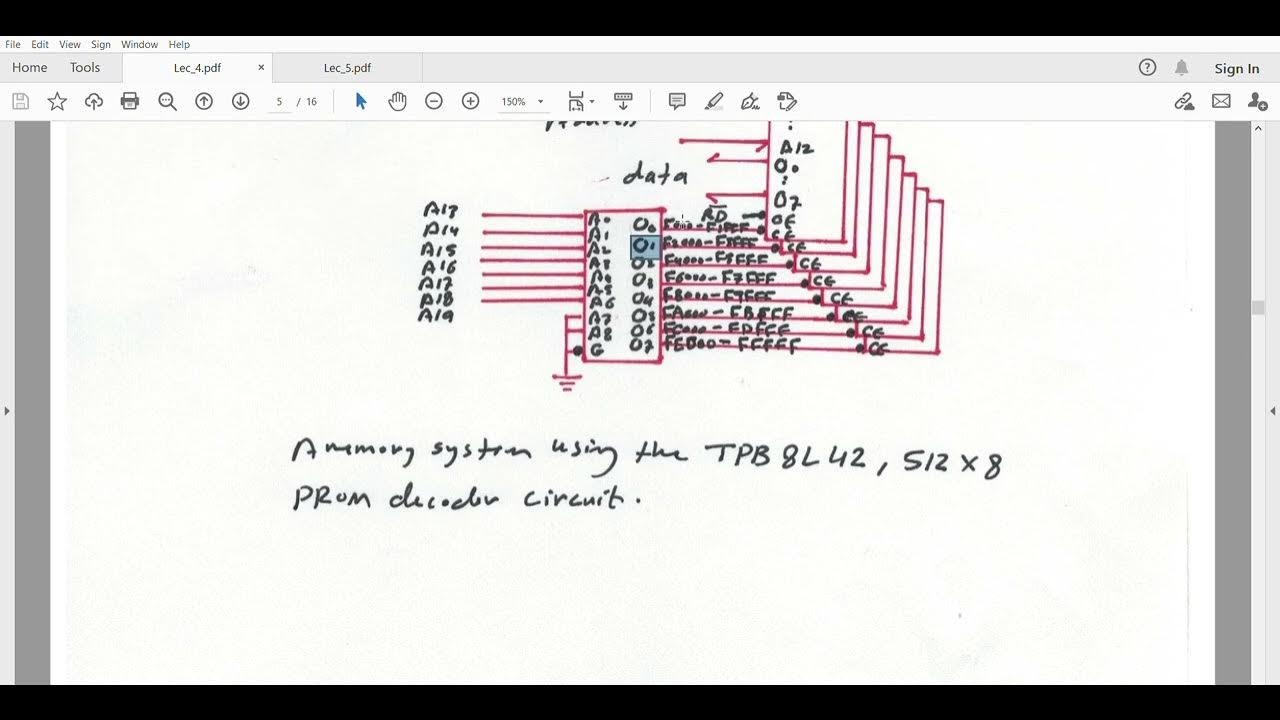 File Edit View Sign Window Help
Home Tools Lec_4.pdf × Lec_5.pdf Sign In
5 / 16 150%
A12
O0
:
data
O7
RD OE
A13 A0 O0 F0000-F1FFF CE
A14 A1 O1 F2000-F3FFF CE
A15 A2 O2 F4000-F5FFF CE
A16 A3 O3 F6000-F7FFF CE
A17 A4 O4 F8000-F9FFF CE
A18 A5 O5 FA000-FBFFF CE
A19 A6 O6 FC000-FDFFF CE
A7 O7 FE000-FFFFF CE
A8
G
A memory system using the TPB 8L42, 512 x 8
PROM decoder circuit.